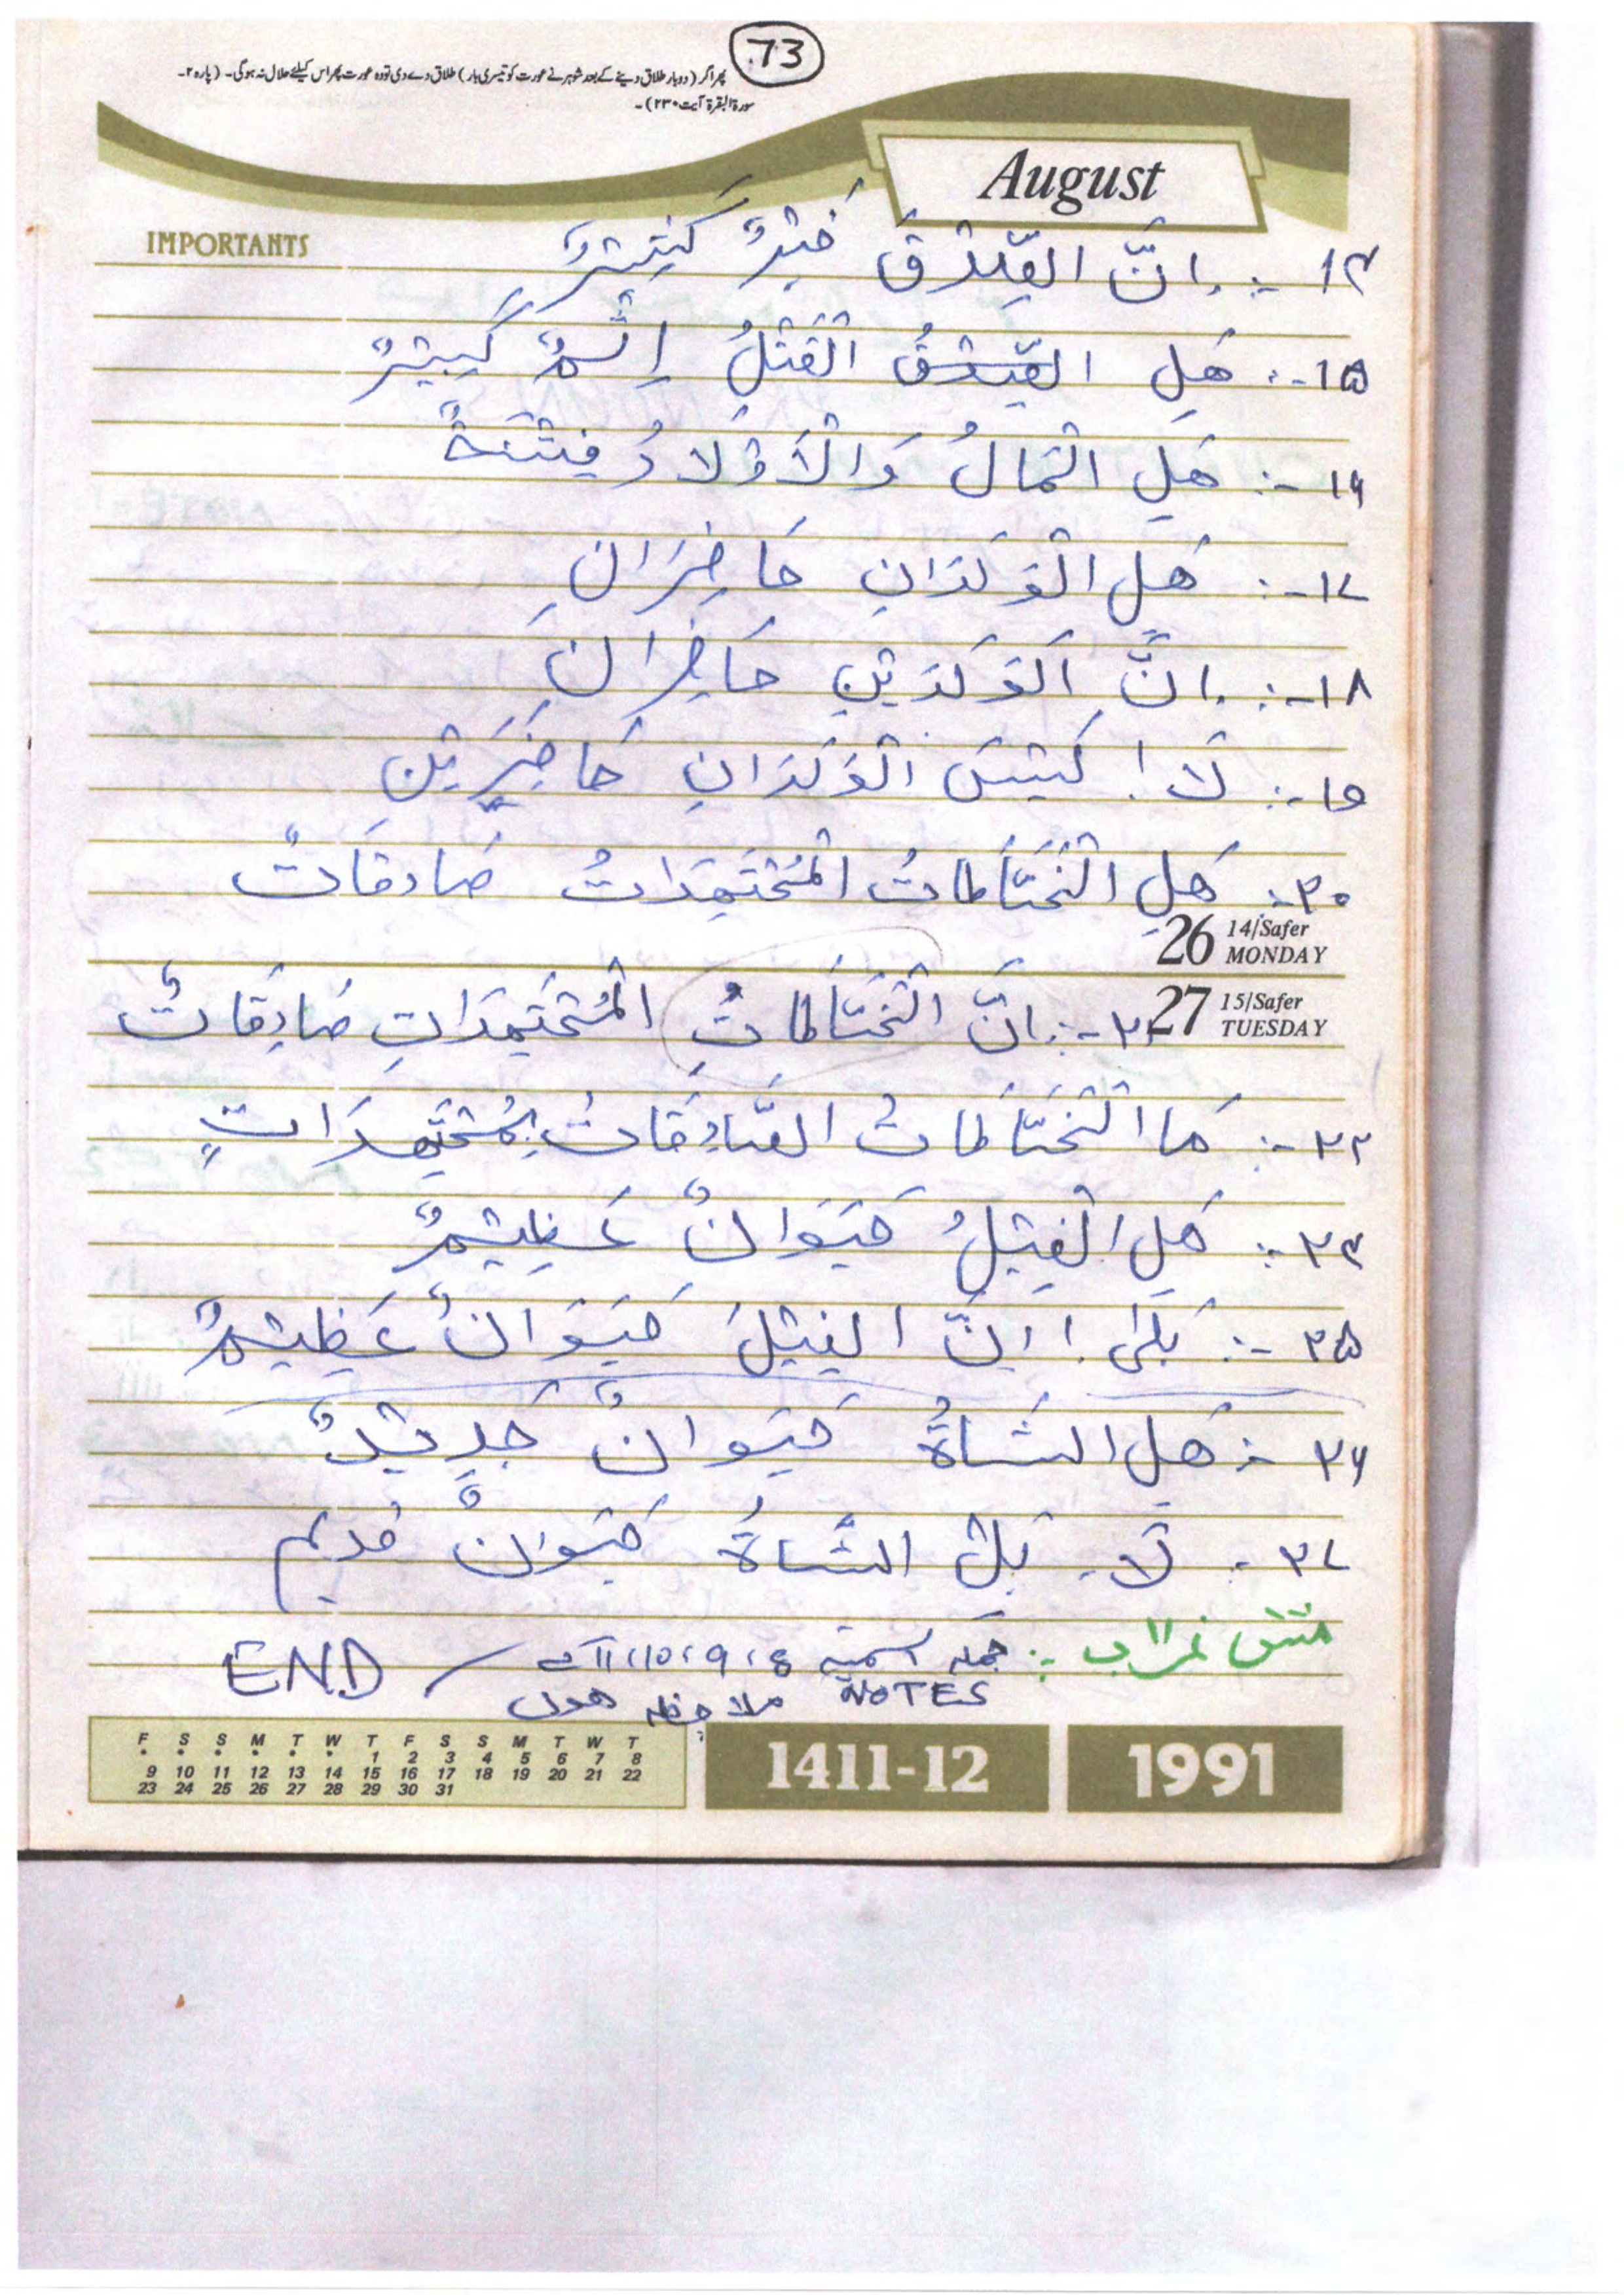 73
پھر اگر (دوبار طلاق دینے کے بعد شوہر نے عورت کو تیسری بار) طلاق دے دی تو وہ عورت پھر اس کیلئے حلال نہ ہوگی۔ (پارہ ۲۔
سورۃ البقرۃ آیت ۲۳۰)۔
August
IMPORTANTS
۱۴ -: اِنَّ الصِّدْقَ خَيْرٌ كَثِيْرٌ
۱۵ -: هَلِ الْقَتْلُ اِثْمٌ كَبِيْرٌ
۱۶ -: هَلِ الْمَالُ وَالْاَوْلَادُ فِتْنَةٌ
۱۷ -: هَلِ الْوَلَدَانِ حَاضِرَانِ
۱۸ -: اِنَّ الْوَلَدَيْنِ حَاضِرَانِ
۱۹ -: لَا! لَيْسَ الْوَلَدَانِ حَاضِرَيْنِ
۲۰ -: هَلِ الْخَيَّاطَاتُ الْمُجْتَهِدَاتُ صَادِقَاتٌ
26 14/Safer MONDAY
27 15/Safer TUESDAY
۲۱ -: اِنَّ الْخَيَّاطَاتِ الْمُجْتَهِدَاتِ صَادِقَاتٌ
۲۲ -: مَا الْخَيَّاطَاتُ الصَّادِقَاتُ بِمُجْتَهِدَاتٍ
۲۴ -: هَلِ الْفِيْلُ حَيَوَانٌ عَظِيْمٌ
۲۵ -: بَلٰى! اِنَّ الْفِيْلَ حَيَوَانٌ عَظِيْمٌ
۲۶ -: هَلِ الشَّاةُ حَيَوَانٌ جَدِيْدٌ
۲۷ -: لَا۔ بَلِ الشَّاةُ حَيَوَانٌ قديم
مشق نمبر :- جملہ اسمیہ 8، 9، 10، 11 کے
NOTES ملاحظہ ہوں
END
F S S M T W T F S S M T W T
• • • • • • 1 2 3 4 5 6 7 8
9 10 11 12 13 14 15 16 17 18 19 20 21 22
23 24 25 26 27 28 29 30 31
1411-12
1991